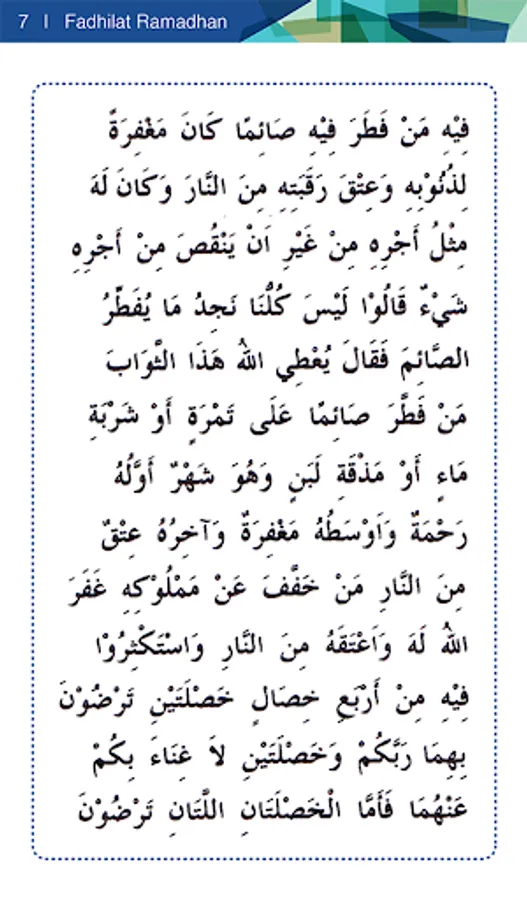 7 | Fadhilat Ramadhan
فِيْهِ مَنْ فَطَرَ فِيْهِ صَائِمًا كَانَ مَغْفِرَةً
لِذُنُوْبِهِ وَعِتْقَ رَقَبَتِهِ مِنَ النَّارَ وَكَانَ لَهَ
مِثْلُ أَجْرِهِ مِنْ غَيْرِ اَنْ يَنْقُصَ مِنْ أَجْرِهِ
شَيْءٌ قَالُوْا لَيْسَ كُلُّنَا نَجِدُ مَا يُفَطِّرُ
الصَّائِمَ فَقَالَ يُعْطِي اللهُ هَذَا الثَّوَابَ
مَنْ فَطَّرَ صَائِمًا عَلَى تَمْرَةٍ أَوْ شَرْبَةِ
مَاءٍ أَوْ مَذْقَةِ لَبَنٍ وَهُوَ شَهْرٌ أَوَّلُهُ
رَحْمَةٌ وَاَوْسَطُهُ مَغْفِرَةٌ وَآخِرُهُ عِتْقٌ
مِنَ النَّارِ مَنْ خَفَّفَ عَنْ مَمْلُوْكِهِ غَفَرَ
اللهُ لَهَ وَاَعْتَقَهُ مِنَ النَّارِ وَاسْتَكْثِرُوْا
فِيْهِ مِنْ أَرْبَعِ خِصَالٍ خَصْلَتَيْنِ تَرْضُوْنَ
بِهِمَا رَبَّكُمْ وَخَصْلَتَيْنِ لاَ غِنَاءَ بِكُمْ
عَنْهُمَا فَأَمَّا الْخَصْلَتَانِ اللَّتَانِ تَرْضُوْنَ